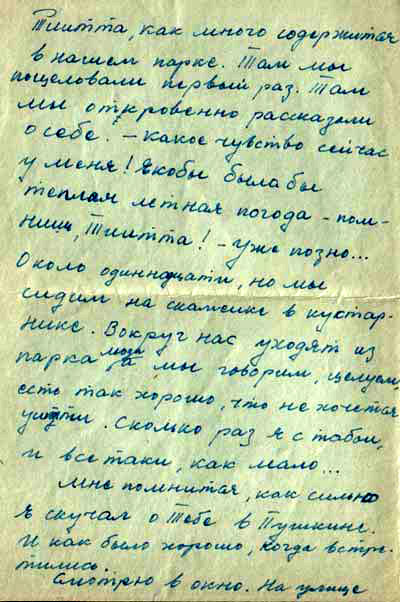 Тиитта, как много содержится
в нашем парке. Там мы
поцеловали первый раз. Там
мы откровенно рассказали
о себе. – какое чувство сейчас
у меня! Якобы была бы
теплая летная погода – пом-
ниш, Тиитта! – уже позно...
Около одиннадцати, но мы
сидим на скамейке в кустар-
нике. Вокруг нас уходят из
парка а мы говорим, целуем,
есть так хорошо, что не хочется
уйти. Сколько раз я с табой,
и все таки, как мало...
Мне помнится, как сильно
я скучал о Тебе в Пушкине.
И как было хорошо, когда встре-
тились.
Смотрю в окно. На улице